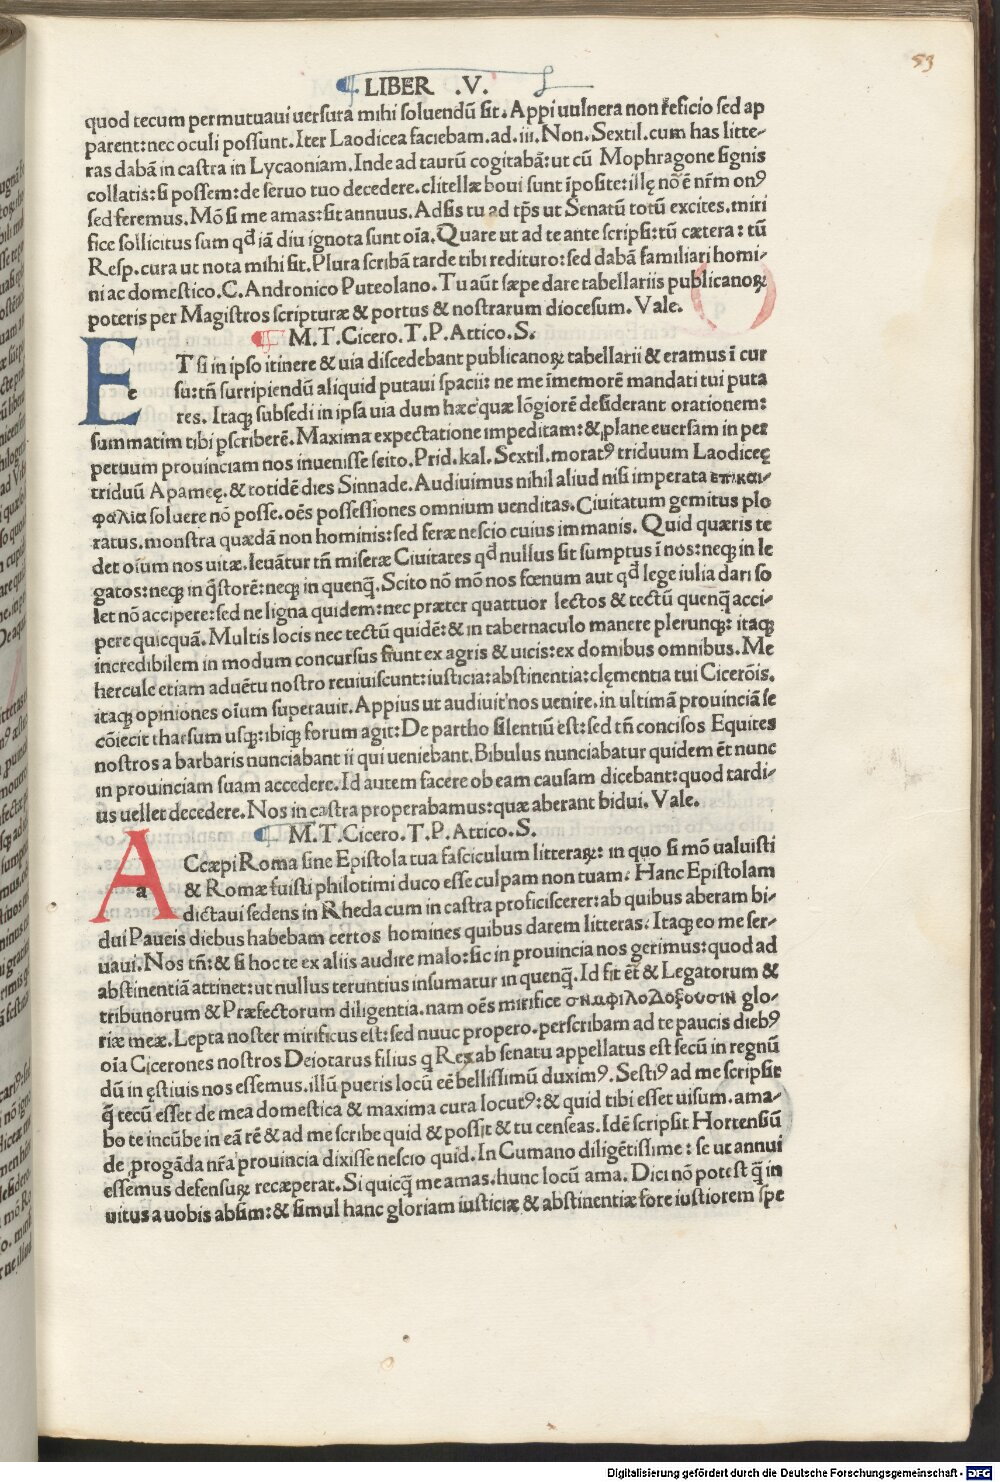 53
LIBER .V.
quod tecum permutaui uersura mihi soluendū sit. Appi uulnera non reficio sed ap
parent: nec oculi possunt. Iter Laodicea faciebam. ad. iii. Non. Sextil. cum has litte-
ras dabā in castra in Lycaoniam. Inde ad taurū cogitabā: ut cū Mophragone signis
collatis: si possem: de seruo tuo decedere. clitellæ boui sunt īposite: illę nō ē nr̄m onꝰ
sed feremus. Mō si me amas: sit annuus. Adsis tu ad tp̄s ut Senatū totū excites. miri
fice sollicitus sum qd̓ iā diu ignota sunt oīa. Quare ut ad te ante scripsi: tū cætera: tū
Resp. cura ut nota mihi sit. Plura scribā tarde tibi redituro: sed dabā familiari homi-
ni ac domestico. C. Andronico Puteolano. Tu aūt sæpe dare tabellariis publicanoꝝ
poteris per Magistros scripturæ & portus & nostrarum diocesum. Vale.
M.T.Cicero.T.P.Attico.S.
E e T si in ipso itinere & uia discedebant publicanoꝝ tabellarii & eramus ī cur
su: tn̄ surripiendū aliquid putaui spacii: ne me īmemorē mandati tui puta
res. Itaqꝫ subsedi in ipsa uia dum hæc quæ lōgiorē desiderant orationem:
summatim tibi pscriberē. Maxima expectatione impeditam: & plane euersam in per
petuum prouinciam nos inuenisse scito. Prid. kal. Sextil. moratꝰ triduum Laodiceę
triduū Apameę. & totidē dies Sinnade. Audiuimus nihil aliud nisi imperata επικαι-
φαλια soluere nō posse. oēs possessiones omnium uenditas. Ciuitatum gemitus plo
ratus. monstra quædā non hominis: sed feræ nescio cuius immanis. Quid quæris te
det oīum nos uitæ. leuātur tn̄ miseræ Ciuitates qd̓ nullus fit sumptus ī nos: neqꝫ in le
gatos: neqꝫ in q̄storē: neqꝫ in quenq̄. Scito nō mō nos fœnum aut qd̓ lege iulia dari so
let nō accipere: sed ne ligna quidem: nec præter quattuor lectos & tectū quenq̄ acci-
pere quicquā. Multis locis nec tectū quidē: & in tabernaculo manere plerunqꝫ: itaqꝫ
incredibilem in modum concursus fiunt ex agris & uicis: ex domibus omnibus. Me
hercule etiam aduētu nostro reuiuiscunt: iusticia: abstinentia: clęmentia tui Cicerōis.
itaqꝫ opiniones oīum superauit. Appius ut audiuit nos uenire. in ultimā prouinciā se
cōiecit tharsum usqꝫ: ibiqꝫ forum agit: De partho silentiū est: sed tn̄ concisos Equites
nostros a barbaris nunciabant ii qui ueniebant. Bibulus nunciabatur quidem ēt nunc
in prouinciam suam accedere. Id autem facere ob eam causam dicebant: quod tardi-
us uellet decedere. Nos in castra properabamus: quæ aberant bidui. Vale.
M.T.Cicero.T.P.Attico.S.
A a Ccæpi Roma sine Epistola tua fasciculum litteraꝝ: in quo si mō ualuisti
& Romæ fuisti philotimi duco esse culpam non tuam: Hanc Epistolam
dictaui sedens in Rheda cum in castra proficiscerer: ab quibus aberam bi-
dui Paueis diebus habebam certos homines quibus darem litteras: Itaqꝫ eo me ser-
uaui. Nos tn̄: & si hoc te ex aliis audire malo: sic in prouincia nos gerimus: quod ad
abstinentiā attinet: ut nullus teruntius insumatur in quenq̄. Id fit ēt & Legatorum &
tribunorum & Præfectorum diligentia. nam oēs mirifice συμφιλοδοξουσιν glo-
riæ meæ. Lepta noster mirificus est: sed nuuc propero. perscribam ad te paucis diebꝰ
oīa Cicerones nostros Deiotarus filius q Rex ab senatu appellatus est secū in regnū
dū in ęstiuis nos essemus. illū pueris locū eē bellissimū duximꝰ. Sestiꝰ ad me scripsit
q̄ tecū esset de mea domestica & maxima cura locutꝰ: & quid tibi esset uisum. ama-
bo te incūbe in eā rē & ad me scribe quid & possit & tu censeas. Idē scripsit Hortensiū
de progāda nr̄a prouincia dixisse nescio quid. In Cumano diligētissime: se ut annui
essemus defensuꝝ recæperat. Si quicq̄ me amas. hunc locū ama. Dici nō potest q̄ in
uitus a uobis absim: & simul hanc gloriam iusticiæ & abstinentiæ fore iustiorem spe
Digitalisierung gefördert durch die Deutsche Forschungsgemeinschaft - DFG